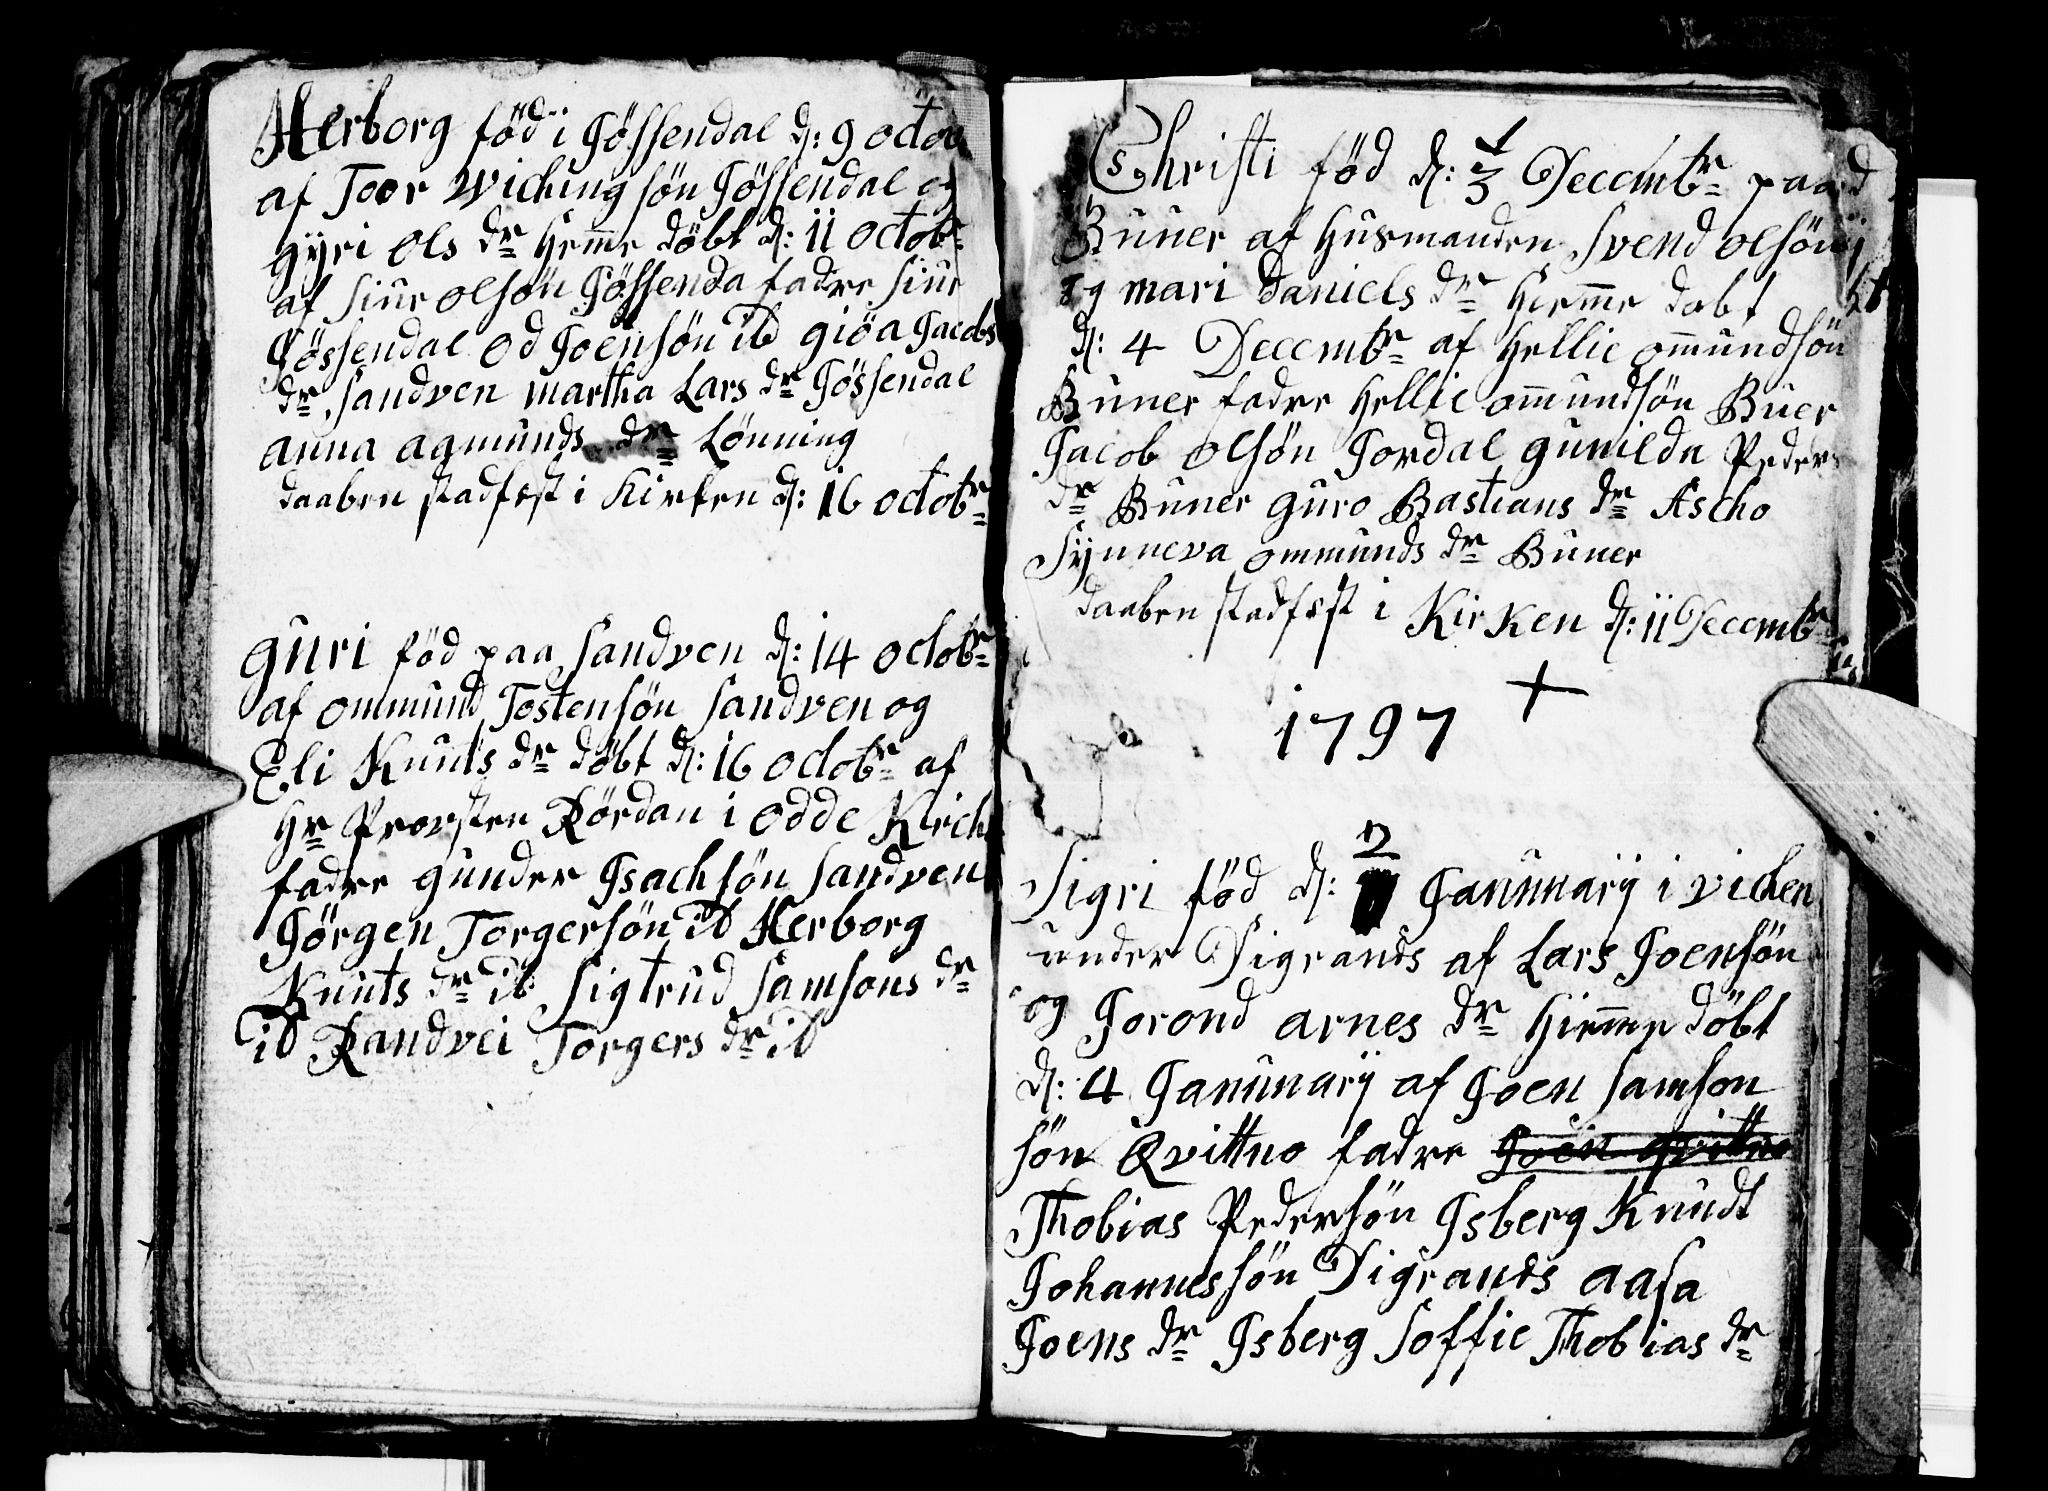 Herborg föd i Jössendal d: 9 octob
af Toor Wiching sön Jössendal og
gyri Ols dr Hieme döbt d: 11 octobr
af Siur olsön Jössenda fadre Siur
Jössendal Od Joensön ib giöa Jacobs
dr Sandven martha Lars dr Jössendal
anna agmunds dr Lönning
daaben stadfest i Kirken d: 16 octobr
guri föd paa Sandven d: 14 octobr
af ommund Tostensön Sandven og
Eli Knuts dr döbt d: 16 octobr af
Hr Provsten Rördan i Odde Kirch
fadre gunder Isachsön Sandven
Jörgen Torgersön ib Herborg
Knuts dr ib Sigtrud Samsons dr
ib Randvei Torgers dr ib
Christi föd d: 3 Decembr paa
Buuer af Husmanden Svend olsön
og mari Daniels dr Hieme dabt
d: 4 Decembr af Hellie omundsön
Buuer fadre Hellie omundsön Buer
Jacob olsön Jordal gunilda Peders
dr Buuer guro Bastians dr Ascho
Synneva ommunds dr Buuer
daaben stadfest i Kirken d: 11 Decembr
1797 +
Sigri föd d: 2 Januuarij i vichen
under Digranes af Lars Joensön
og Jorond arnes dr Hieme döbt
d: 4 Januuarij af Joen Samson
sön Qvittno fadre Joen Qvittno
Thobias Pedersön Isberg Knudt
Johannessön Digranes aasa
Joens dr Isberg Soffie Thobias dr